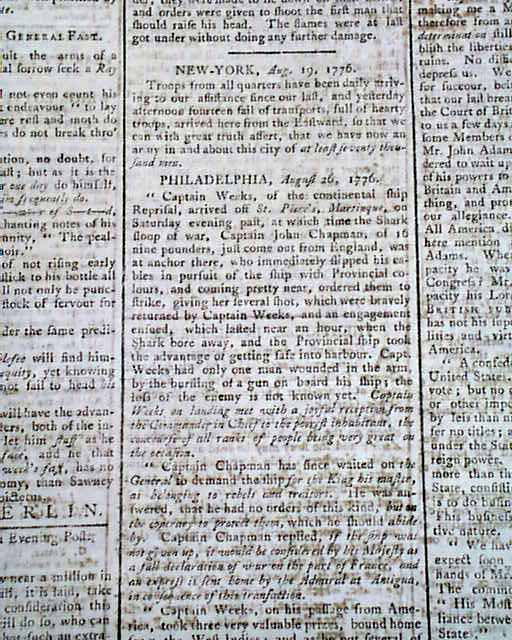 GENERAL FAST.
ult the arms of a
al sorrow seek a Ray
l not even count his
t endeavour "to lay
ere rust and moth do
es do not break thro'
ation, no doubt, for
all; but as it is the
r one day do himself,
chanting notes of his
unity, "The peal-
of not rising early
stick to his bottle all
ill not only be punc-
stock of fervour for
der the same predi-
will find him-
equity, yet knowing
not fail to head his
will have the advan-
ders, both of the in-
let him stuff as he
fast, and he that
week's fast, has no
omy, than Sawney
ERLIN.
Evening Post:
near a million in
it is laid, take
consideration this
ill do so, who can
such an extra-
and orders were given to shoot the first man that
should raise his head. The flames were at last
got under without doing any further damage.
NEW-YORK, Aug. 19, 1776.
Troops from all quarters have been daily arriv-
ing to our assistance since our last, and yesterday
afternoon fourteen sail of transports, full of hearty
troops, arrived here from the Eastward, so that we
can with great truth assert, that we have now an
army in and about this city of at least seventy thou-
sand men.
PHILADELPHIA, August 26, 1776.
" Captain Weeks, of the continental ship
Reprisal, arrived off St. Piere's, Martinique, on
Saturday evening past, at which time the Shark
sloop of war, Captain John Chapman, of 16
nine pounders, just come out from England, was
at anchor there, who immediately slipped his ca-
bles in pursuit of the ship with Provincial co-
lours, and coming pretty near, ordered them to
strike, giving her several shot, which were bravely
returned by Captain Weeks, and an engagement
ensued, which lasted near an hour, when the
Shark bore away, and the Provincial ship took
the advantage of getting safe into harbour. Capt.
Weeks had only one man wounded in the arm,
by the bursting of a gun on board his ship; the
loss of the enemy is not known yet. Captain
Weeks on landing met with a joyful reception from
the Commander in Chief to the poorest inhabitant, the
concourse of all ranks of people being very great on
the occasion.
" Captain Chapman has since waited on the
General to demand the ship for the King his master,
as belonging to rebels and traitors. He was an-
swered, that he had no orders of this kind, but on
the contrary to protect them, which he should abide
by. Captain Chapman replied, if the ship was
not given up, it would be considered by his Majesty as
a full declaration of war on the part of France, and
an express is sent home by the Admiral at Antigua,
in consequence of this transaction.
" Captain Weeks, on his passage from Ame-
rica, took three very valuable prizes, bound home
making me a M
therefore from a
determined on still
blish the liberties
ruins. No diffi
depress us. We
for succour, bein
that our last brea
the Court of Brit
to us a few days
some Members o
Mr. John Adam
dered to wait up
of his powers to
Britain and Am
thing, and pro
our allegiance.
All America, d
here mention
Adams. Whe
pacity he was
Congress? Mr.
pacity his Lor
BRITISH SUB
has not his sup
lities and vic
America.
" A confed
United States.
vote; but no
or other impo
by less than ni
fer no titles; a
under the Stat
reign power.
more than th
State, consisti
is to do busin
This business
tive nature.
" We hav
expect soon
hands of Mr.
The comm
" His Most
liance betwee